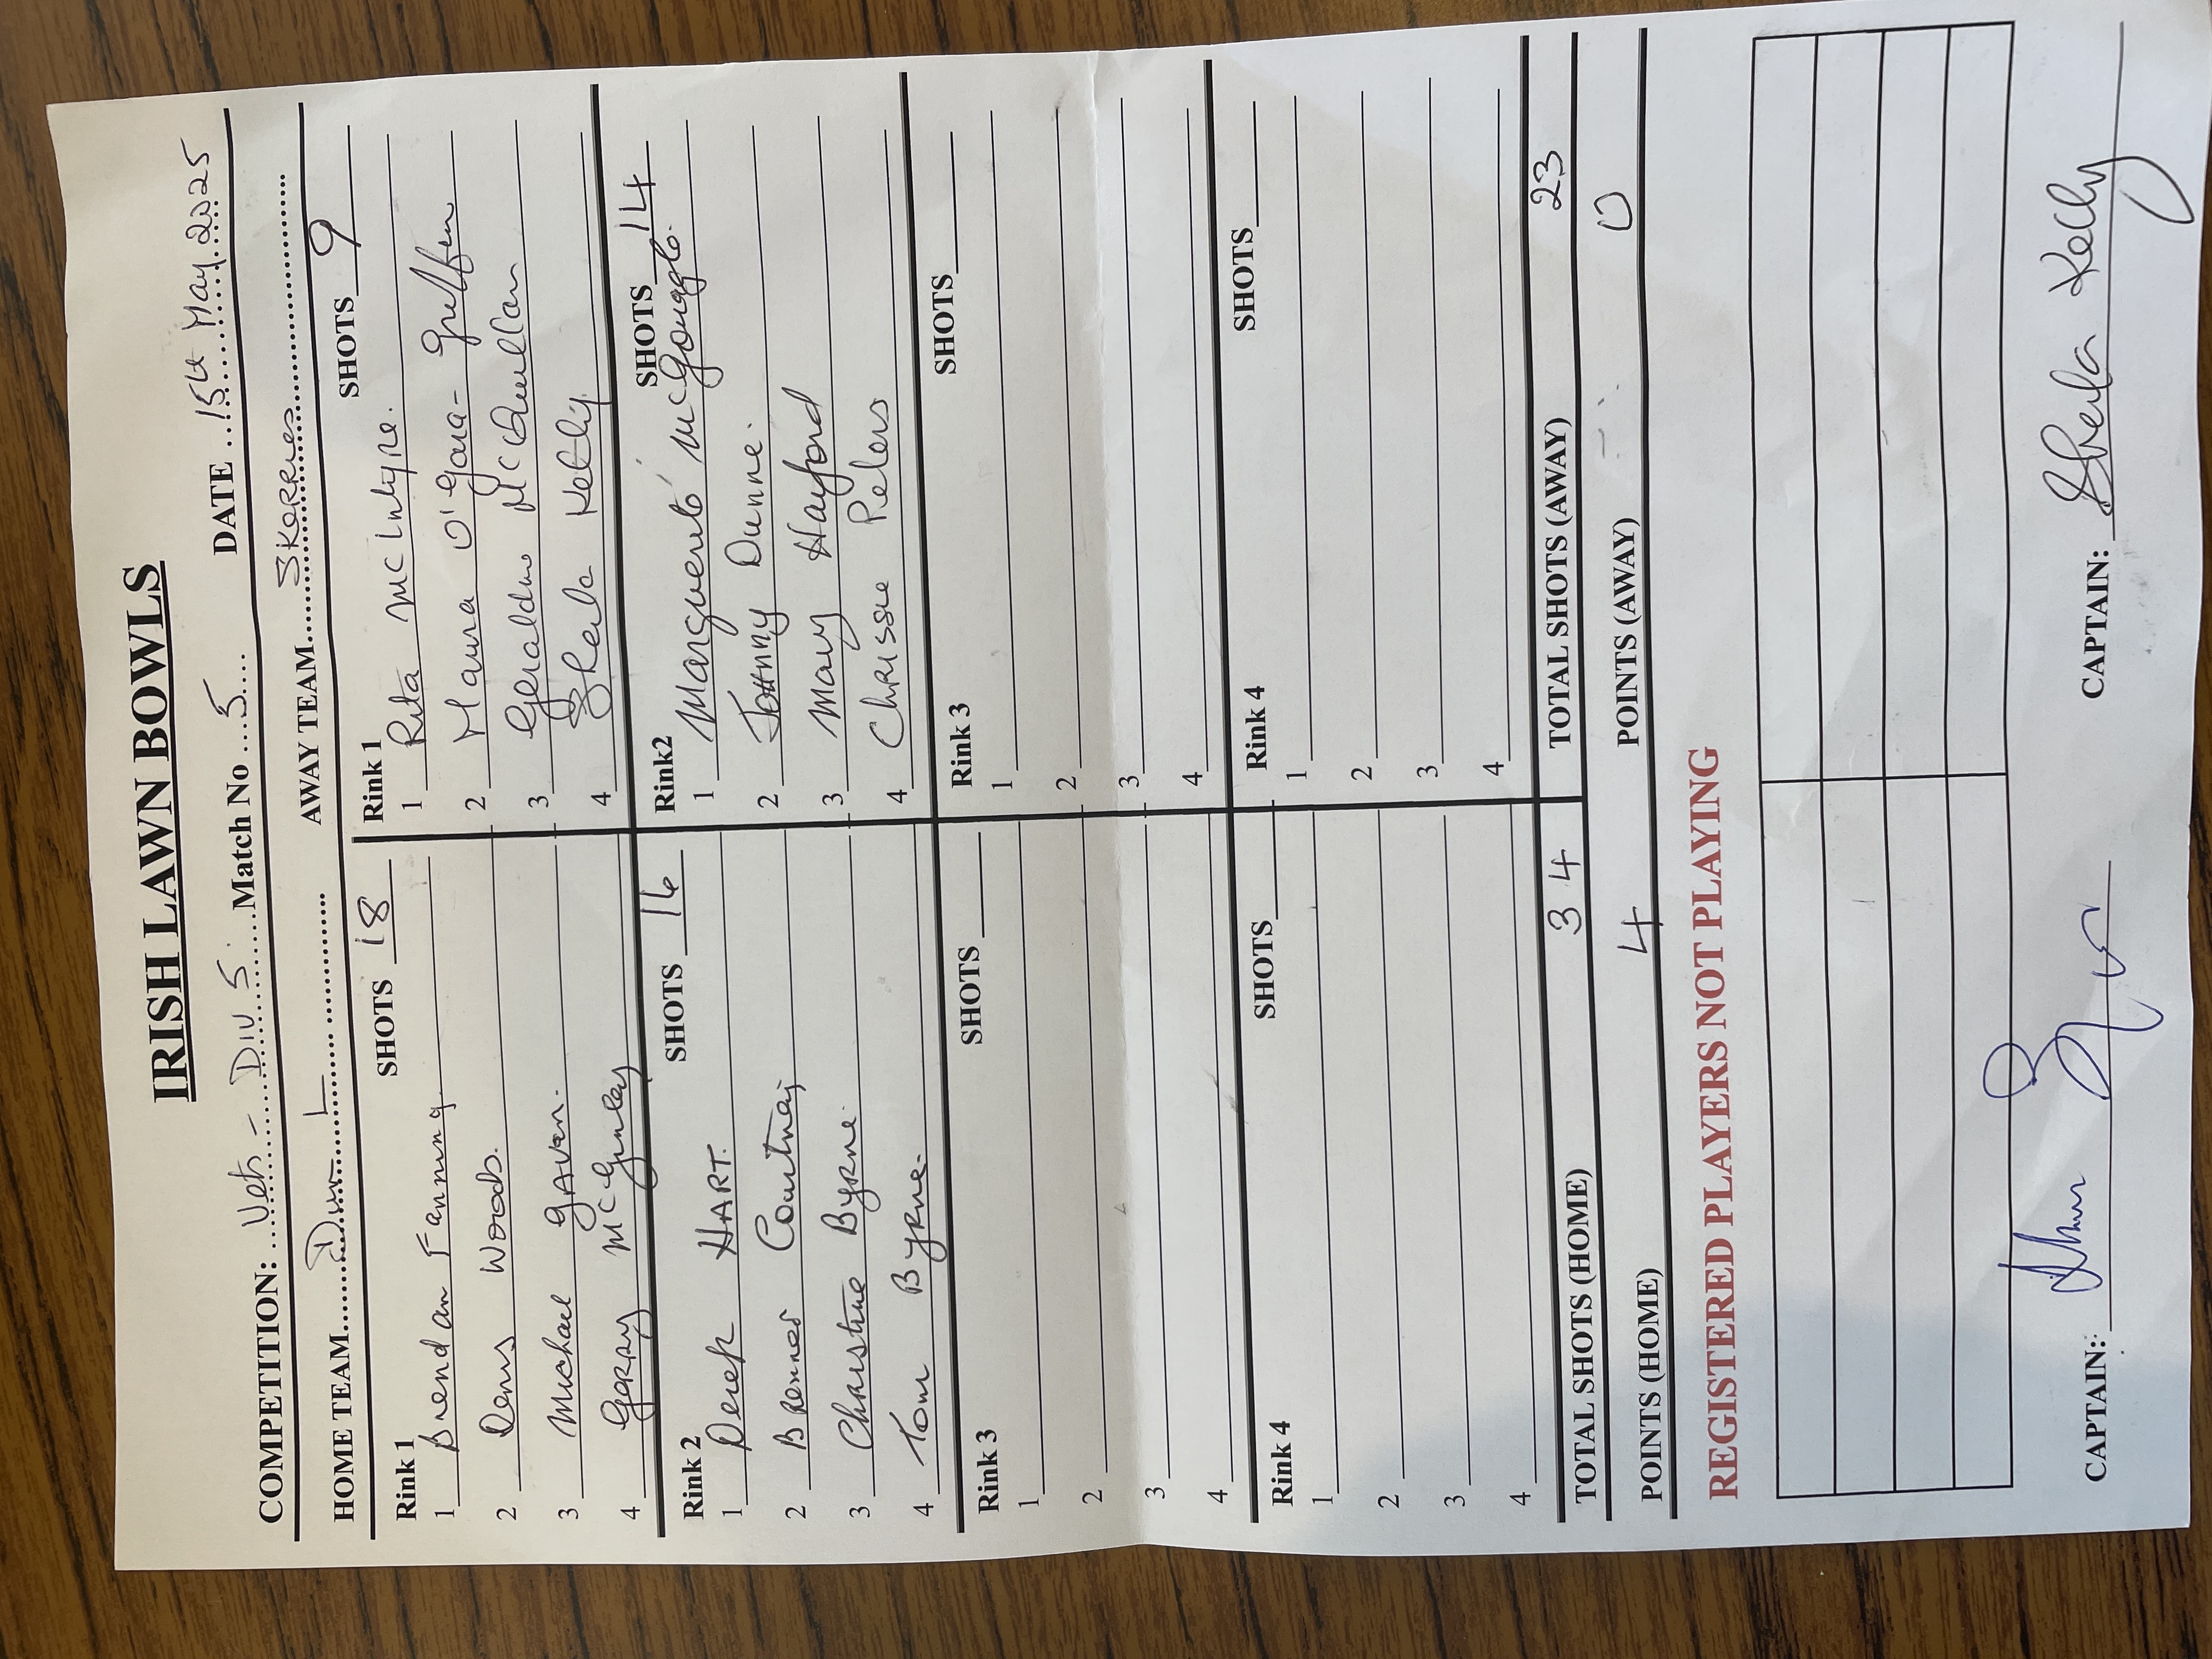 IRISH LAWN BOWLS
COMPETITION: Vets - Div 5 Match No 5 DATE 15th May 2025
HOME TEAM Dun L AWAY TEAM Skerries
Rink 1 SHOTS 18 Rink 1 SHOTS 9
1 Brendan Fanning 1 Rita McIntyre.
2 Denis Woods. 2 Maura O'Gara-Griffin
3 Michael GAVan. 3 Geraldine McQuillan
4 Gerry McGinley 4 Sheila Kelly.
Rink 2 SHOTS 16 Rink2 SHOTS 14
1 Derek HART. 1 Marguerite McGonagle.
2 Courtney 2 Johnny Dunne.
3 Christine Byrne. 3 Mary Hayford
4 Tom Byrne. 4 Chrissie Peters
Rink 3 SHOTS Rink 3 SHOTS
1 1
2 2
3 3
4 4
Rink 4 SHOTS Rink 4 SHOTS
1 1
2 2
3 3
4 4
TOTAL SHOTS (HOME) 34 TOTAL SHOTS (AWAY) 23
POINTS (HOME) 4 POINTS (AWAY) 0
REGISTERED PLAYERS NOT PLAYING
CAPTAIN: CAPTAIN: Sheila Kelly